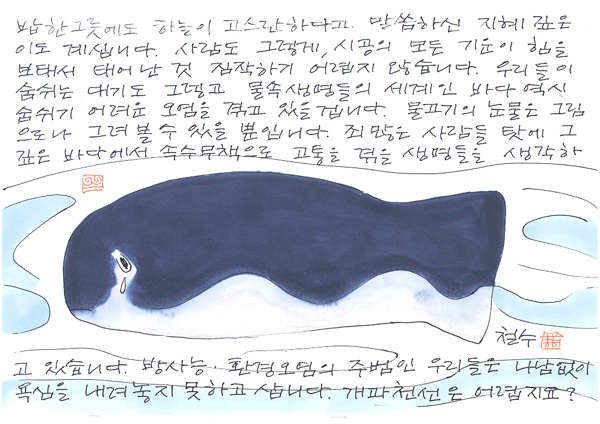 밥 한그릇에도 하늘이 고스란하다고. 말씀하신 지혜 깊은
이도 계십니다. 사람도 그렇게, 시공의 모든 기운이 힘을
보태서 태어난 것 짐작하기 어렵지 않습니다. 우리들이
숨쉬는 대기도 그렇고 물속생명들의 세계인 바다 역시
숨쉬기 어려운 오염을 겪고 있을겁니다. 물고기의 눈물은 그림
으로나 그려볼 수 있을 뿐입니다. 죄많은 사람들 탓에 그
깊은 바다에서 속수무책으로 고통을 겪을 생명들을 생각하
철수
고 있습니다. 방사능·환경오염의 주범인 우리들은 너나없이
욕심을 내려놓지 못하고 삽니다. 개과천선은 어렵지요?